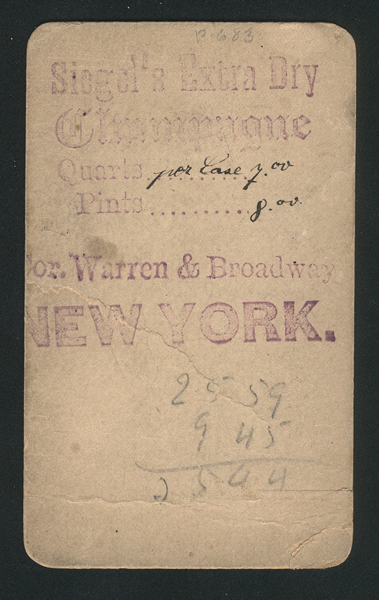 P.683
Siegel's Extra Dry
Champagne
Quarts per Case 7.00
Pints .......... 8.00
Cor. Warren & Broadway
NEW YORK.
25 59
9 45
2544